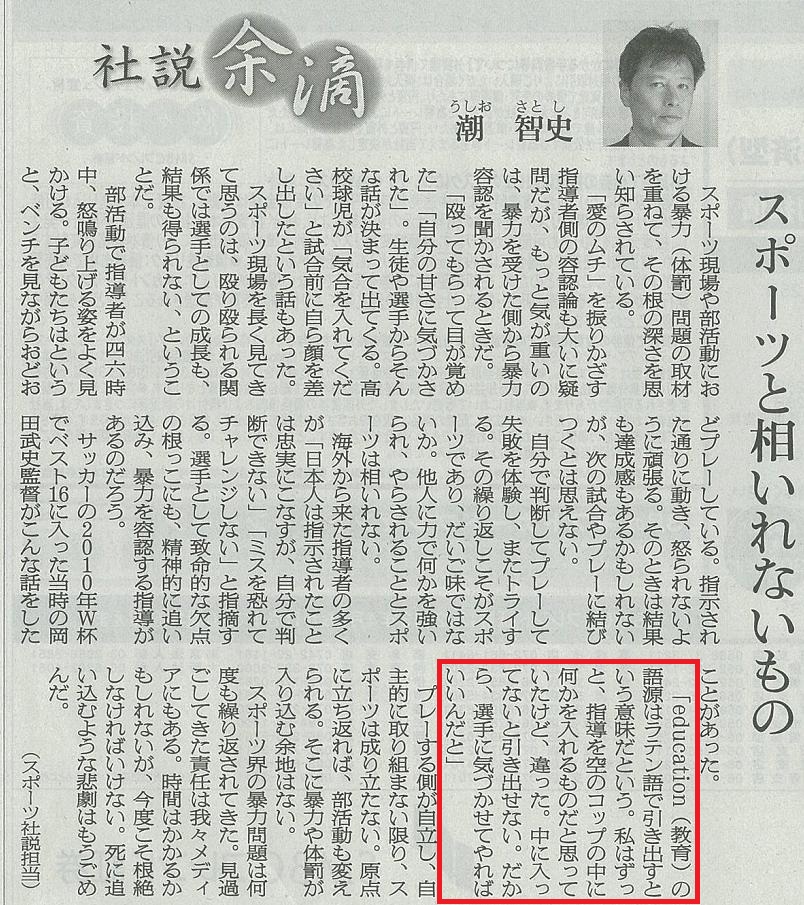 社説余滴
うしお さとし
潮 智史
スポーツと相いれないもの
スポーツ現場や部活動にお
ける暴力（体罰）問題の取材
を重ねて、その根の深さを思
い知らされている。
「愛のムチ」を振りかざす
指導者側の容認論も大いに疑
問だが、もっと気が重いの
は、暴力を受けた側から暴力
容認を聞かされるときだ。
「殴ってもらって目が覚め
た」「自分の甘さに気づかさ
れた」。生徒や選手からそん
な話が決まって出てくる。高
校球児が「気合を入れてくだ
さい」と試合前に自ら顔を差
し出したという話もあった。
スポーツ現場を長く見てき
て思うのは、殴り殴られる関
係では選手としての成長も、
結果も得られない、というこ
とだ。
部活動で指導者が四六時
中、怒鳴り上げる姿をよく見
かける。子どもたちはという
と、ベンチを見ながらおどお
どプレーしている。指示され
た通りに動き、怒られないよ
うに頑張る。そのときは結果
も達成感もあるかもしれない
が、次の試合やプレーに結び
つくとは思えない。
自分で判断してプレーして
失敗を体験し、またトライす
る。その繰り返しこそがスポ
ーツであり、だいご味ではな
いか。他人に力で何かを強い
られ、やらされることとスポ
ーツは相いれない。
海外から来た指導者の多く
が「日本人は指示されたこと
は忠実にこなすが、自分で判
断できない」「ミスを恐れて
チャレンジしない」と指摘す
る。選手として致命的な欠点
の根っこにも、精神的に追い
込み、暴力を容認する指導が
あるのだろう。
サッカーの2010年W杯
でベスト16に入った当時の岡
田武史監督がこんな話をした
ことがあった。
「education（教育）の
語源はラテン語で引き出すと
いう意味だという。私はずっ
と、指導を空のコップの中に
何かを入れるものだと思って
いたけど、違った。中に入っ
てないと引き出せない。だか
ら、選手に気づかせてやれば
いいんだと」
プレーする側が自立し、自
主的に取り組まない限り、ス
ポーツは成り立たない。原点
に立ち返れば、部活動も変え
られる。そこに暴力や体罰が
入り込む余地はない。
スポーツ界の暴力問題は何
度も繰り返されてきた。見過
ごしてきた責任は我々メディ
アにもある。時間はかかるか
もしれないが、今度こそ根絶
しなければいけない。死に追
い込むような悲劇はもうごめ
んだ。
（スポーツ社説担当）